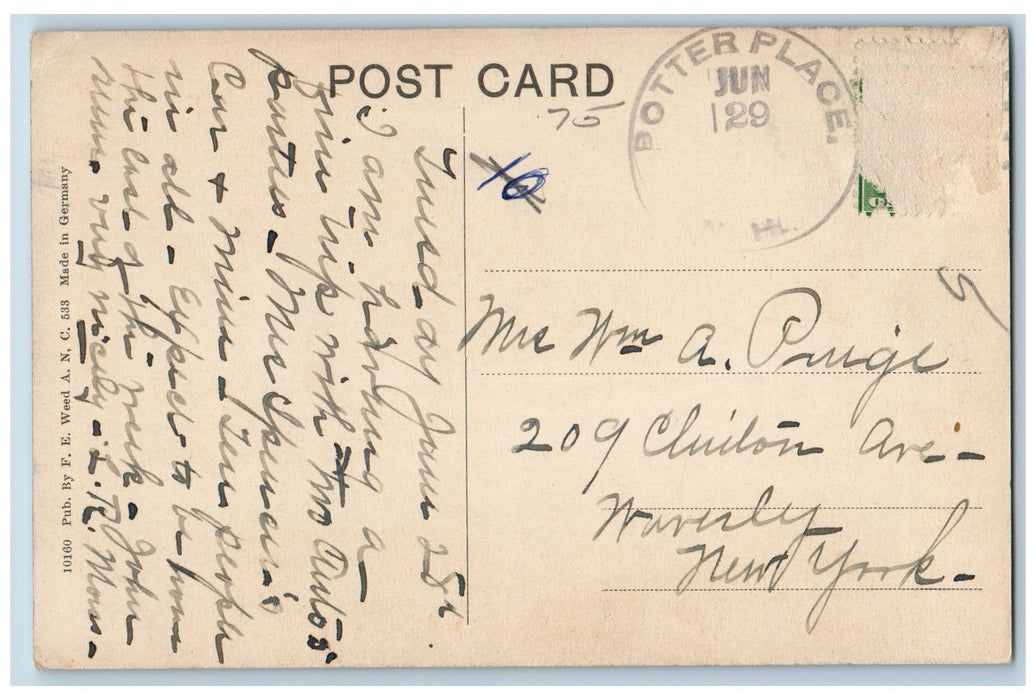 POST CARD
POTTER PLACE.
JUN
29
75
10
Tuesday June 28th
I am having a
fine trip with two autos
parties - Mr Spencer's
Car & Mine - Ten people
in all - Expect to be home
the last of the week - John
runs very nicely - L. R. Moss -
Mrs Wm A. Paige
209 Clinton Ave -
Waverly
New York -
10160 Pub. By F. E. Weed A. N, C. 533 Made in Germany